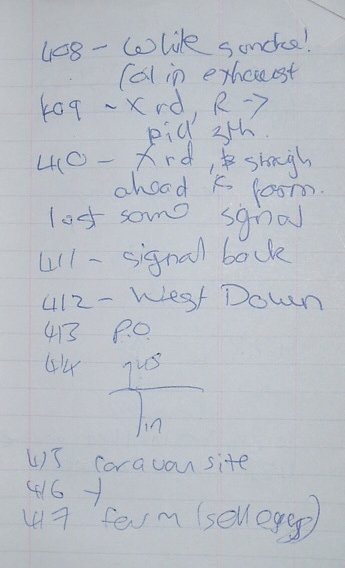 408 - White smoke!
in exhaust
409 - X rd, R ->
410 - X rd, straigh
ahead farm.
lost some signal
411 - signal back
412 - West Down
413 P.O.
414
in
415 caravan site
416
417 farm (sell eggs)